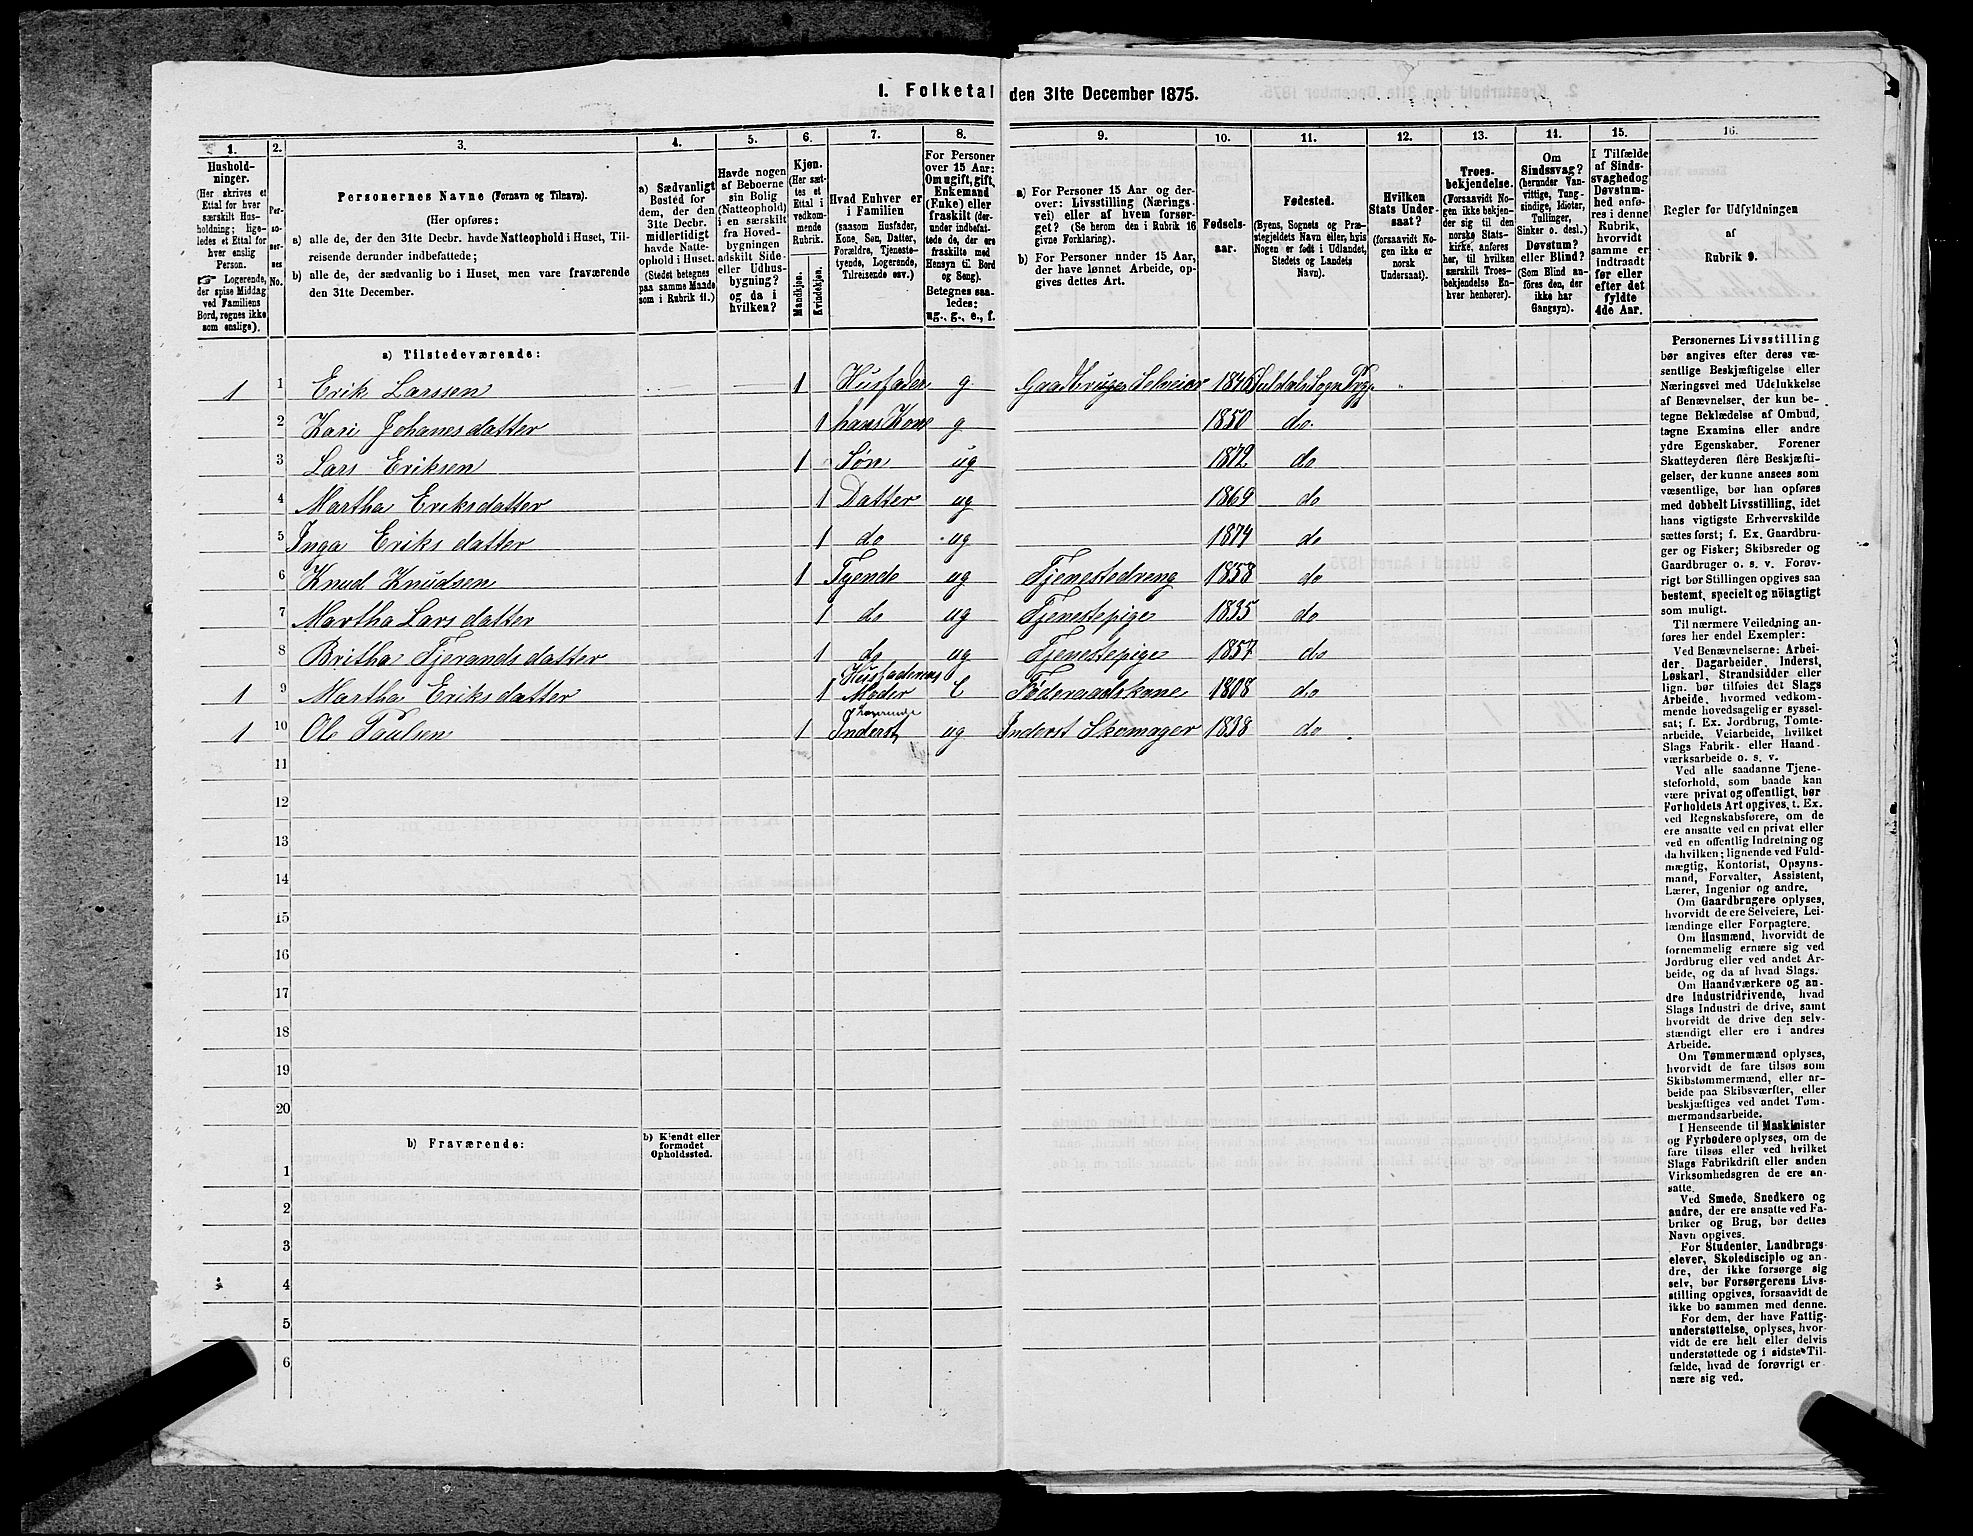 1. Folketal den 31te December 1875.
1. 2. 3. 4. 5. 6. 7. 8. 9. 10. 11. 12. 13. 14. 15. 16.
Hushold-
ninger.
(Her skrives et
Ettal for hver
særskilt Hus-
holdning; lige-
ledes et Ettal for
hver enslig
Person.
☞ Logerende,
der spise Middag
ved Familiens
Bord, regnes ikke
som enslige).
Per-
soner-
nes
No.
Personernes Navne (Fornavn og Tilnavn).
(Her opføres:
a) alle de, der den 31te Decbr. havde Natteophold i Huset, Til-
reisende derunder indbefattede;
b) alle de, der sædvanlig bo i Huset, men vare fraværende
den 31te December.
a) Sædvanligt
Bosted for
dem, der den
31te Decbr.
midlertidigt
havde Natte-
ophold i Huset.
(Stedet betegnes
paa samme Maade
som i Rubrik 11.)
Havde nogen
af Beboerne
sin Bolig
(Natteophold)
i en særskilt
fra Hoved-
bygningen
adskilt Side-
eller Udhus-
bygning?
og da i
hvilken?
Kjøn.
(Her sæt-
tes et
Ettal i
vedkom-
mende
Rubrik.
Mandkjøn.
Kvindekjøn.
Hvad Enhver er
i Familien
(saasom Husfader,
Kone, Søn, Datter,
Forældre, Tjeneste-
tyende, Logerende,
Tilreisende osv.)
For Personer
over 15 Aar:
Om ugift, gift,
Enkemand
(Enke) eller
fraskilt (der-
under indbefat-
tede de, der ere
fraskilte med
Hensyn til Bord
og Seng).
Betegnes saa-
ledes:
ug., g., e., f.
a) For Personer 15 Aar og der-
over: Livsstilling (Nærings-
vei) eller af hvem forsør-
get? (Se herom den i Rubrik 16
givne Forklaring).
b) For Personer under 15 Aar,
der have lønnet Arbeide, op-
gives dettes Art.
Fødsels-
aar.
Fødested.
(Byens, Sognets og Præ-
stegjeldets Navn eller, hvis
Nogen er født i Udlandet,
Stedets og Landets
Navn).
Hvilken
Stats Under-
saat?
(forsaavidt No-
gen ikke er
norsk
Undersaat).
Troes-
bekjendelse.
(Forsaavidt No-
gen ikke bekjen-
der sig til den
norske Stats-
kirke, anføres
her, til hvilken
særskilt Troes-
bekjendelse En-
hver henhører).
Om
Sindssvag?
(herunder Van-
vittige, Tung-
sindige, Idioter,
Tullinger,
Sinker o. desl.).
Døvstum?
eller Blind?
(Som Blind an-
føres den, der
ikke har
Gangsyn).
I Tilfælde
af Sinds-
svaghed og
Døvstum-
hed anfø-
res i denne
Rubrik,
hvorvidt
samme er
indtraadt
før eller
efter det
fyldte
4de Aar.
Regler for Udfyldningen
af
Rubrik 9.
a) Tilstedeværende:
1 1 Erik Larssen 1 Husfader g. Gaardbruger Selveier 1846 Suldals Sogn Præg
2 Kari Johanesdatter 1 hans Kone g 1850 do.
3 Lars Eriksen 1 Søn ug 1872 do
4 Martha Eriksdatter 1 Datter ug 1869 do
5 Inga Eriksdatter 1 do ug 1874 do
6 Knud Knudsen 1 Tyende ug Tjenestedreng 1858 do
7 Martha Larsdatter 1 do ug Tjenestepige 1835 do
8 Britha Tjerandsdatter 1 do ug Tjenestepige 1857 do
1 9 Martha Eriksdatter 1 Husfaderens Moder e Føderaadskone 1808 do
1 10 Ole Paulsen 1 Logerende Inderst ug Inderst Skomager 1838 do
11
12
13
14
15
16
17
18
19
20
b) Fraværende:
b) Kjendt eller
formodet
Opholdssted.
1
2
3
4
5
6
Personernes Livsstilling
bør angives efter deres væ-
sentlige Beskjæftigelse eller
Næringsvei med Udelukkelse
af Benævnelser, der kun be-
tegne Beklædelse af Ombud,
tagne Examina eller andre
ydre Egenskaber. Forener
Skatteyderen flere Beskjæfti-
gelser, der kunne ansees som
væsentlige, bør han opføres
med dobbelt Livsstilling, idet
hans vigtigste Erhvervskilde
sættes først; f. Ex. Gaardbru-
ger og Fisker; Skibsreder og
Gaardbruger o. s. v. Forøv-
rigt bør Stillingen opgives saa
bestemt, specielt og nöiagtigt
som muligt.
Til nærmere Veiledning an-
føres her endel Exempler:
Ved Benævnelserne: Arbei-
der, Dagarbeider, Inderst,
Løskarl, Strandsidder eller
lign. bør tilføies det Slags
Arbeide, hvormed vedkom-
mende hovedsagelig er syssel-
sat; f. Ex. Jordbrug, Tomte-
arbeide, Veiarbeide, hvilket
Slags Fabrik- eller Haand-
værksarbeide o. s. v.
Ved alle saadanne Tjene-
steforhold, som baade kan
være privat og offentligt, bør
Forholdets Art opgives, t. Ex.
ved Regnskabsførere, om de
ere ansatte ved en privat eller
ved en offentlig Indretning og
da hvilken; lignende ved Fuld-
mægtig, Kontorist, Opsyns-
mand, Forvalter, Assistent,
Lærer, Ingeniør og andre.
Om Gaardbrugere oplyses,
hvorvidt de ere Selveiere, Lei-
lændinge eller Forpagtere.
Om Husmænd, hvorvidt de
fornemmelig ernære sig ved
Jordbrug eller ved andet Ar-
beide, og da af hvad Slags.
Om Haandværkere og an-
dre Industridrivende, hvad
Slags Industri de drive, samt
hvorvidt de drive den selv-
stændigt eller ere i andres
Arbeide.
Om Tømmermænd oplyses,
hvorvidt de fare tilsøs som
Skibstømmermænd, eller ar-
beide paa Skibsværfter, eller
beskjæftiges ved andet Tøm-
mermandsarbeide.
I Henseende til Maskinister
og Fyrbødere oplyses, om de
fare tilsøs eller ved hvilket
Slags Fabrikdrift eller anden
Virksomhedsgren de ere an-
satte.
Ved Smede, Snedkere og
andre, der ere ansatte ved Fa-
briker og Brug, bør dettes
Navn opgives.
For Studenter, Landbrugs-
elever, Skoledisciple og an-
dre, der ikke forsørge sig
selv, bør Forsørgerens Livs-
stilling opgives, forsaavidt de
ikke bo sammen med denne.
For dem, der have Fattig-
understøttelse, oplyses, hvor-
vidt de ere helt eller delvis
understøttede og i sidste Til-
fælde, hvad de forøvrigt er-
nære sig ved.